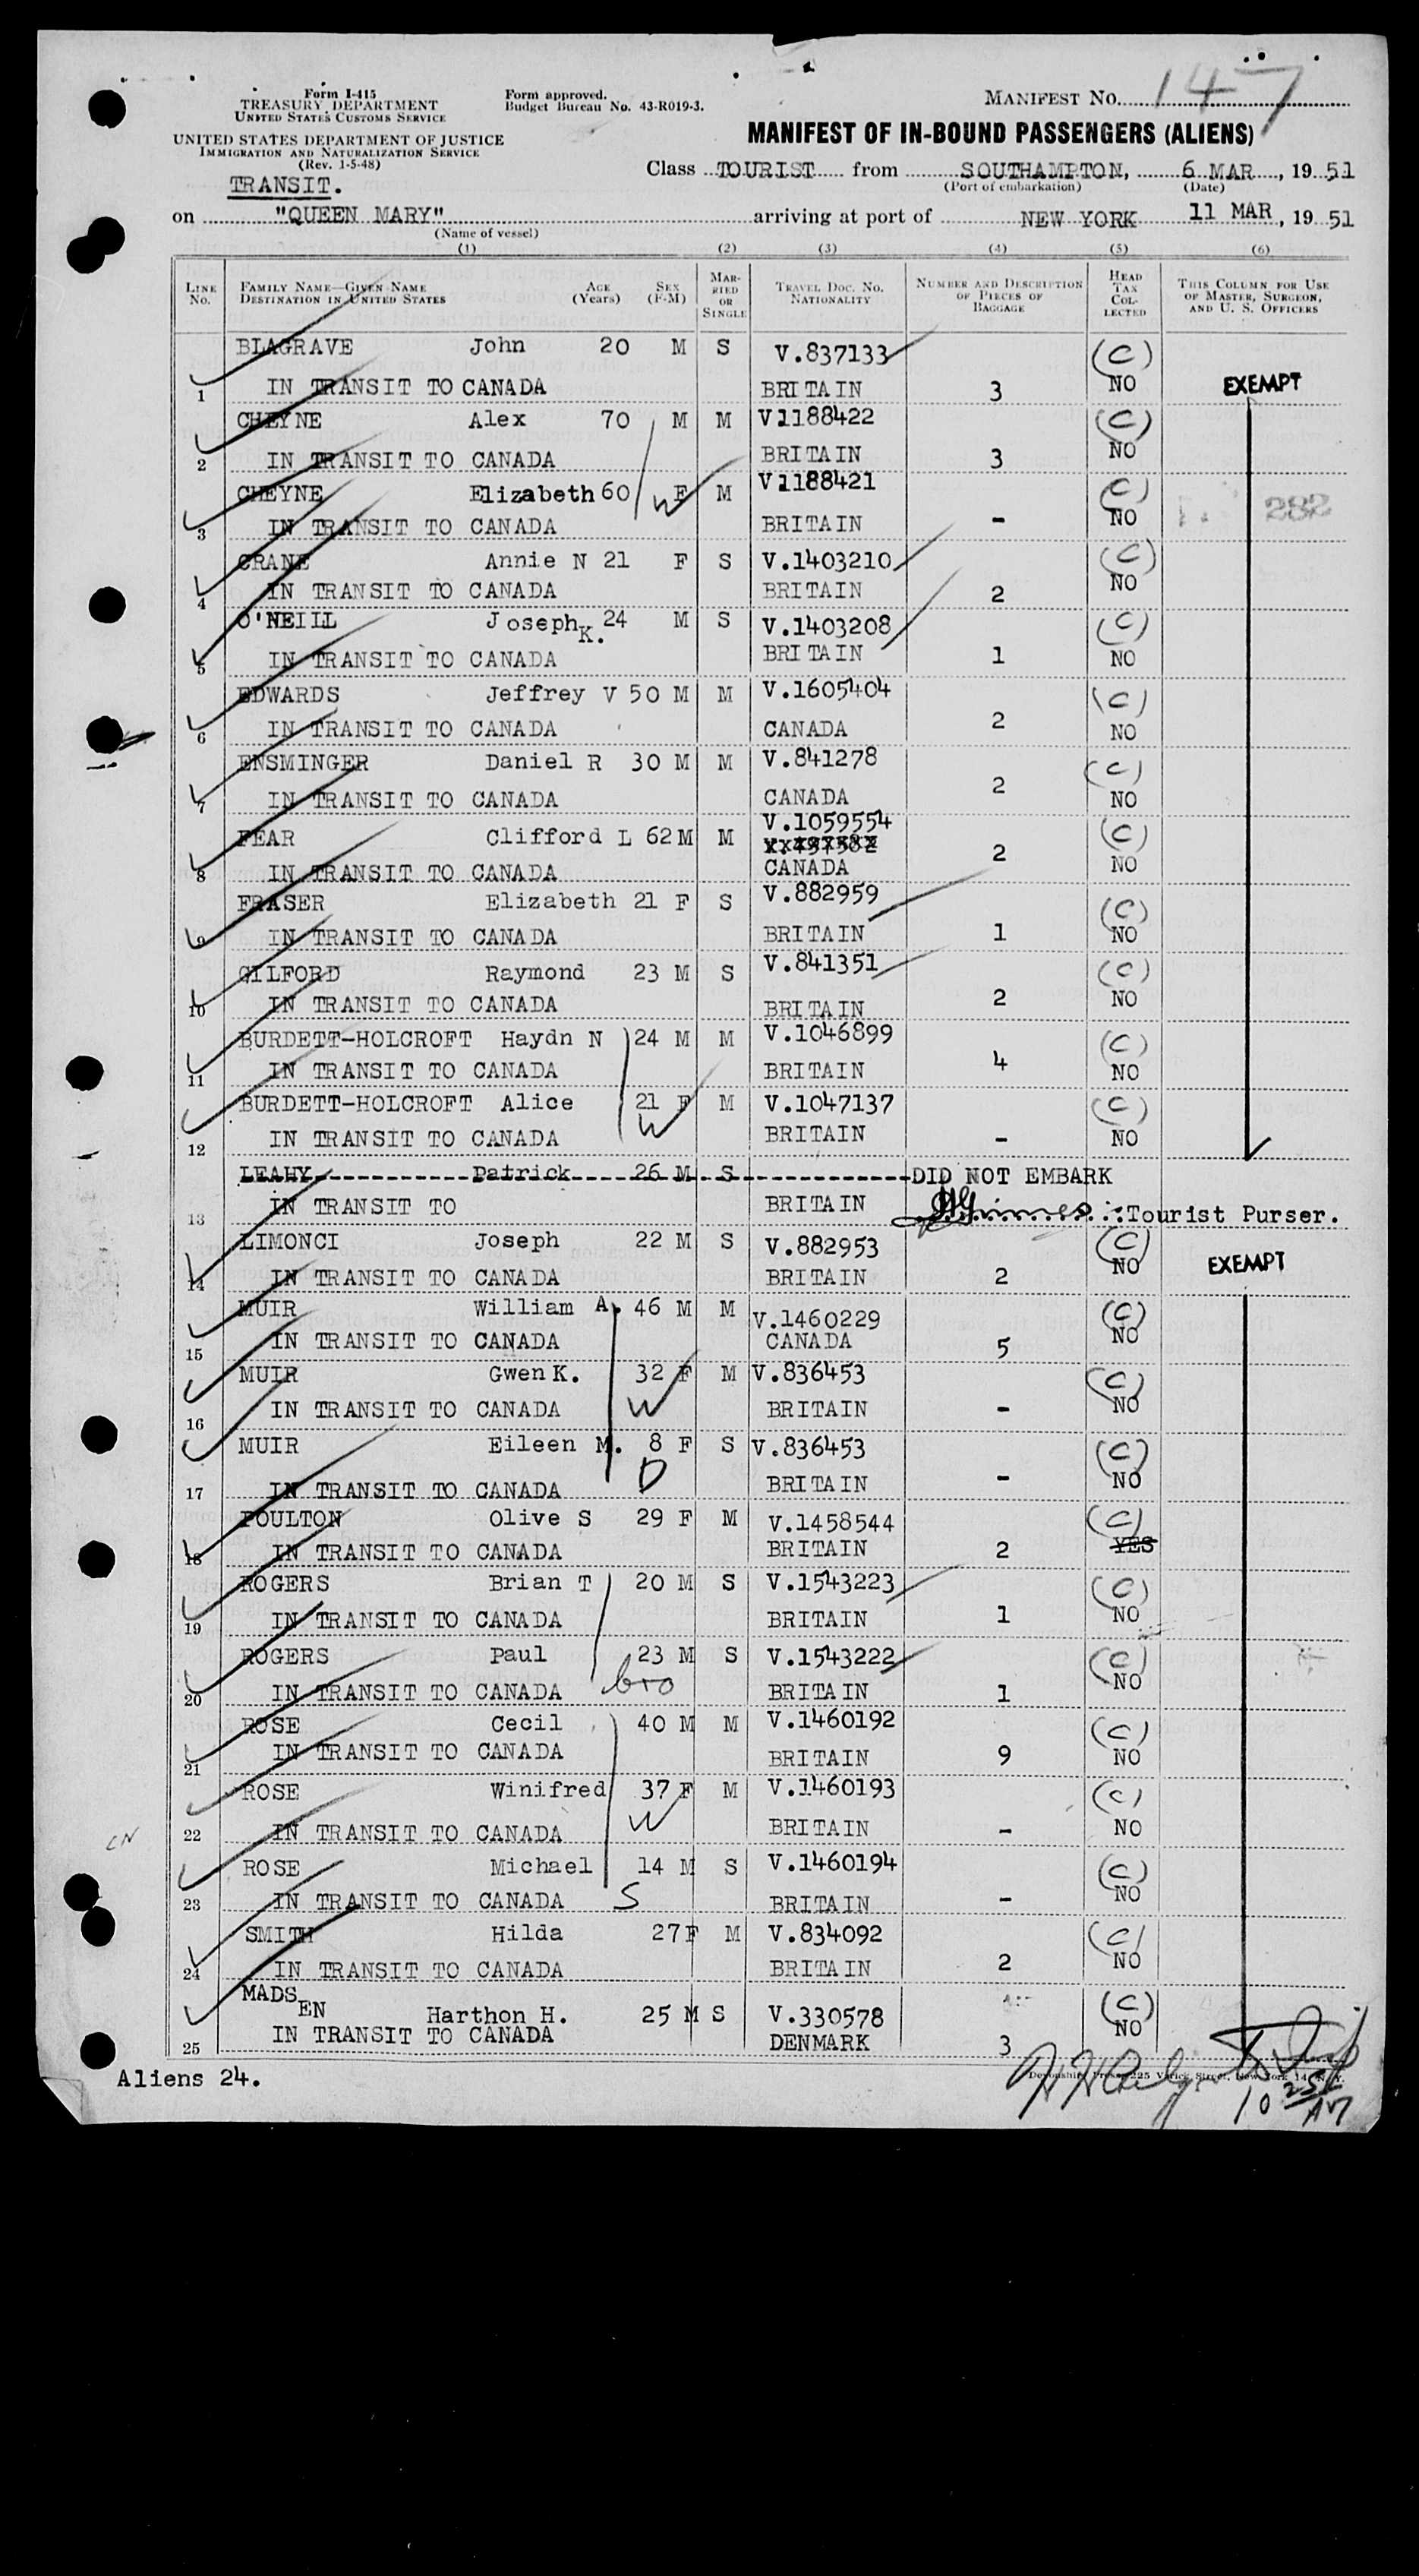 Form I-415
TREASURY DEPARTMENT
UNITED STATES CUSTOMS SERVICE
UNITED STATES DEPARTMENT OF JUSTICE
IMMIGRATION AND NATURALIZATION SERVICE
(Rev. 1-5-48)
TRANSIT.
Form approved.
Budget Bureau No. 43-R019-3.
MANIFEST NO. 147
MANIFEST OF IN-BOUND PASSENGERS (ALIENS)
Class TOURIST from SOUTHAMPTON, 6 MAR, 19 51
(Port of embarkation) (Date)
on "QUEEN MARY" arriving at port of NEW YORK 11 MAR, 19 51
(Name of vessel)
(1) (2) (3) (4) (5) (6)
LINE NO. FAMILY NAME—GIVEN NAME DESTINATION IN UNITED STATES AGE (Years) SEX (F-M) MARRIED OR SINGLE TRAVEL DOC. NO. NATIONALITY NUMBER AND DESCRIPTION OF PIECES OF BAGGAGE HEAD TAX COLLECTED THIS COLUMN FOR USE OF MASTER, SURGEON, AND U. S. OFFICERS
BLAGRAVE John 20 M S V.837133 (C)
1 IN TRANSIT TO CANADA BRITAIN 3 NO EXEMPT
CHEYNE Alex 70 M M V1188422 (C)
2 IN TRANSIT TO CANADA BRITAIN 3 NO
CHEYNE Elizabeth 60 F M V1188421 (C)
W
3 IN TRANSIT TO CANADA BRITAIN - NO 282
CRANE Annie N 21 F S V.1403210 (C)
4 IN TRANSIT TO CANADA BRITAIN 2 NO
O'NEILL Joseph K. 24 M S V.1403208 (C)
5 IN TRANSIT TO CANADA BRITAIN 1 NO
EDWARDS Jeffrey V 50 M M V.1605404 (C)
6 IN TRANSIT TO CANADA CANADA 2 NO
ENSMINGER Daniel R 30 M M V.841278 (C)
7 IN TRANSIT TO CANADA CANADA 2 NO
FEAR Clifford L 62 M M V.1059554 (C)
8 IN TRANSIT TO CANADA CANADA 2 NO
FRASER Elizabeth 21 F S V.882959 (C)
9 IN TRANSIT TO CANADA BRITAIN 1 NO
GILFORD Raymond 23 M S V.841351 (C)
10 IN TRANSIT TO CANADA BRITAIN 2 NO
BURDETT-HOLCROFT Haydn N 24 M M V.1046899 (C)
11 IN TRANSIT TO CANADA BRITAIN 4 NO
BURDETT-HOLCROFT Alice 21 F M V.1047137 (C)
W
12 IN TRANSIT TO CANADA BRITAIN - NO
LEAHY Patrick 26 M S DID NOT EMBARK
13 IN TRANSIT TO BRITAIN Tourist Purser.
LIMONCI Joseph 22 M S V.882953 (C)
14 IN TRANSIT TO CANADA BRITAIN 2 NO EXEMPT
MUIR William A. 46 M M V.1460229 (C)
15 IN TRANSIT TO CANADA CANADA 5 NO
MUIR Gwen K. 32 F M V.836453 (C)
16 IN TRANSIT TO CANADA W BRITAIN - NO
MUIR Eileen M. 8 F S V.836453 (C)
D
17 IN TRANSIT TO CANADA BRITAIN - NO
POULTON Olive S 29 F M V.1458544 (C)
18 IN TRANSIT TO CANADA BRITAIN 2 YES
ROGERS Brian T 20 M S V.1543223 (C)
19 IN TRANSIT TO CANADA BRITAIN 1 NO
ROGERS Paul 23 M S V.1543222 (C)
20 IN TRANSIT TO CANADA bro BRITAIN 1 NO
ROSE Cecil 40 M M V.1460192 (C)
21 IN TRANSIT TO CANADA BRITAIN 9 NO
ROSE Winifred 37 F M V.1460193 (C)
W
22 IN TRANSIT TO CANADA BRITAIN - NO
ROSE Michael 14 M S V.1460194 (C)
23 IN TRANSIT TO CANADA S BRITAIN - NO
SMITH Hilda 27 F M V.834092 (C)
24 IN TRANSIT TO CANADA BRITAIN 2 NO
MADSEN Harthon H. 25 M S V.330578 (C)
25 IN TRANSIT TO CANADA DENMARK 3 NO
Aliens 24.